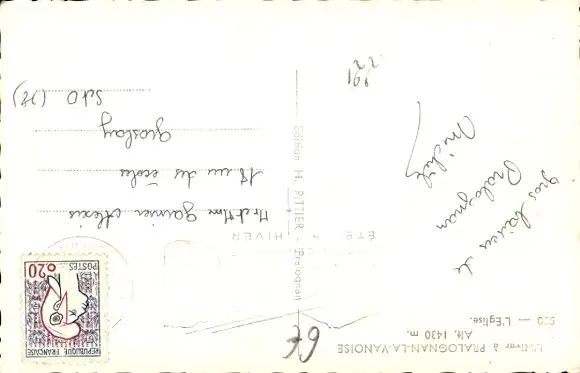 L'Hiver à PRALOGNAN-LA-VANOISE
Alt. 1430 m.
520 — L'Église.
6€
Gros baisers de
Pralognan
Michèle
Edition H. PITTIER - Pralognan
REPUBLIQUE FRANÇAISE
POSTES
0,20
ÉTÉ
HIVER
Mr et Mme Garnier Alexis
18 rue des écoles
Groslay
S et O (78)